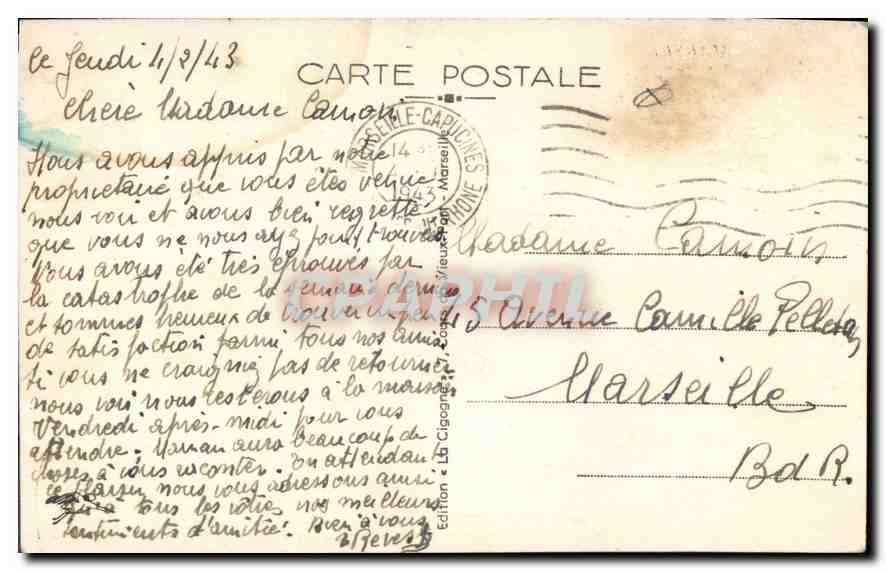 le Jeudi 4/2/43
CARTE POSTALE
Chère Madame Camoin
MARSEILLE-CAPUCINES
14
1943
RHONE
Nous avons appris par notre
propriétaire que vous êtes venue
nous voir et avons bien regretté
que vous ne nous ayez point trouvés
Nous avons été très éprouvés par
la catastrophe de la semaine dernière
et sommes heureux de trouver un peu
de satisfaction parmi tous nos amis
si vous ne craignez pas de retourner
nous voir nous resterons à la maison
Vendredi après-midi pour vous
attendre. Maman aura beaucoup de
choses à vous raconter. En attendant
ce plaisir nous vous adressons ainsi
qu'à tous les vôtres nos meilleurs
sentiments d'amitié. Bien à vous
Revest
Edition « La Cigogne » Vieux-Port - Marseille
Madame Camoin
43 Avenue Camille Pelletan
Marseille
BdR.
CPAPHIL